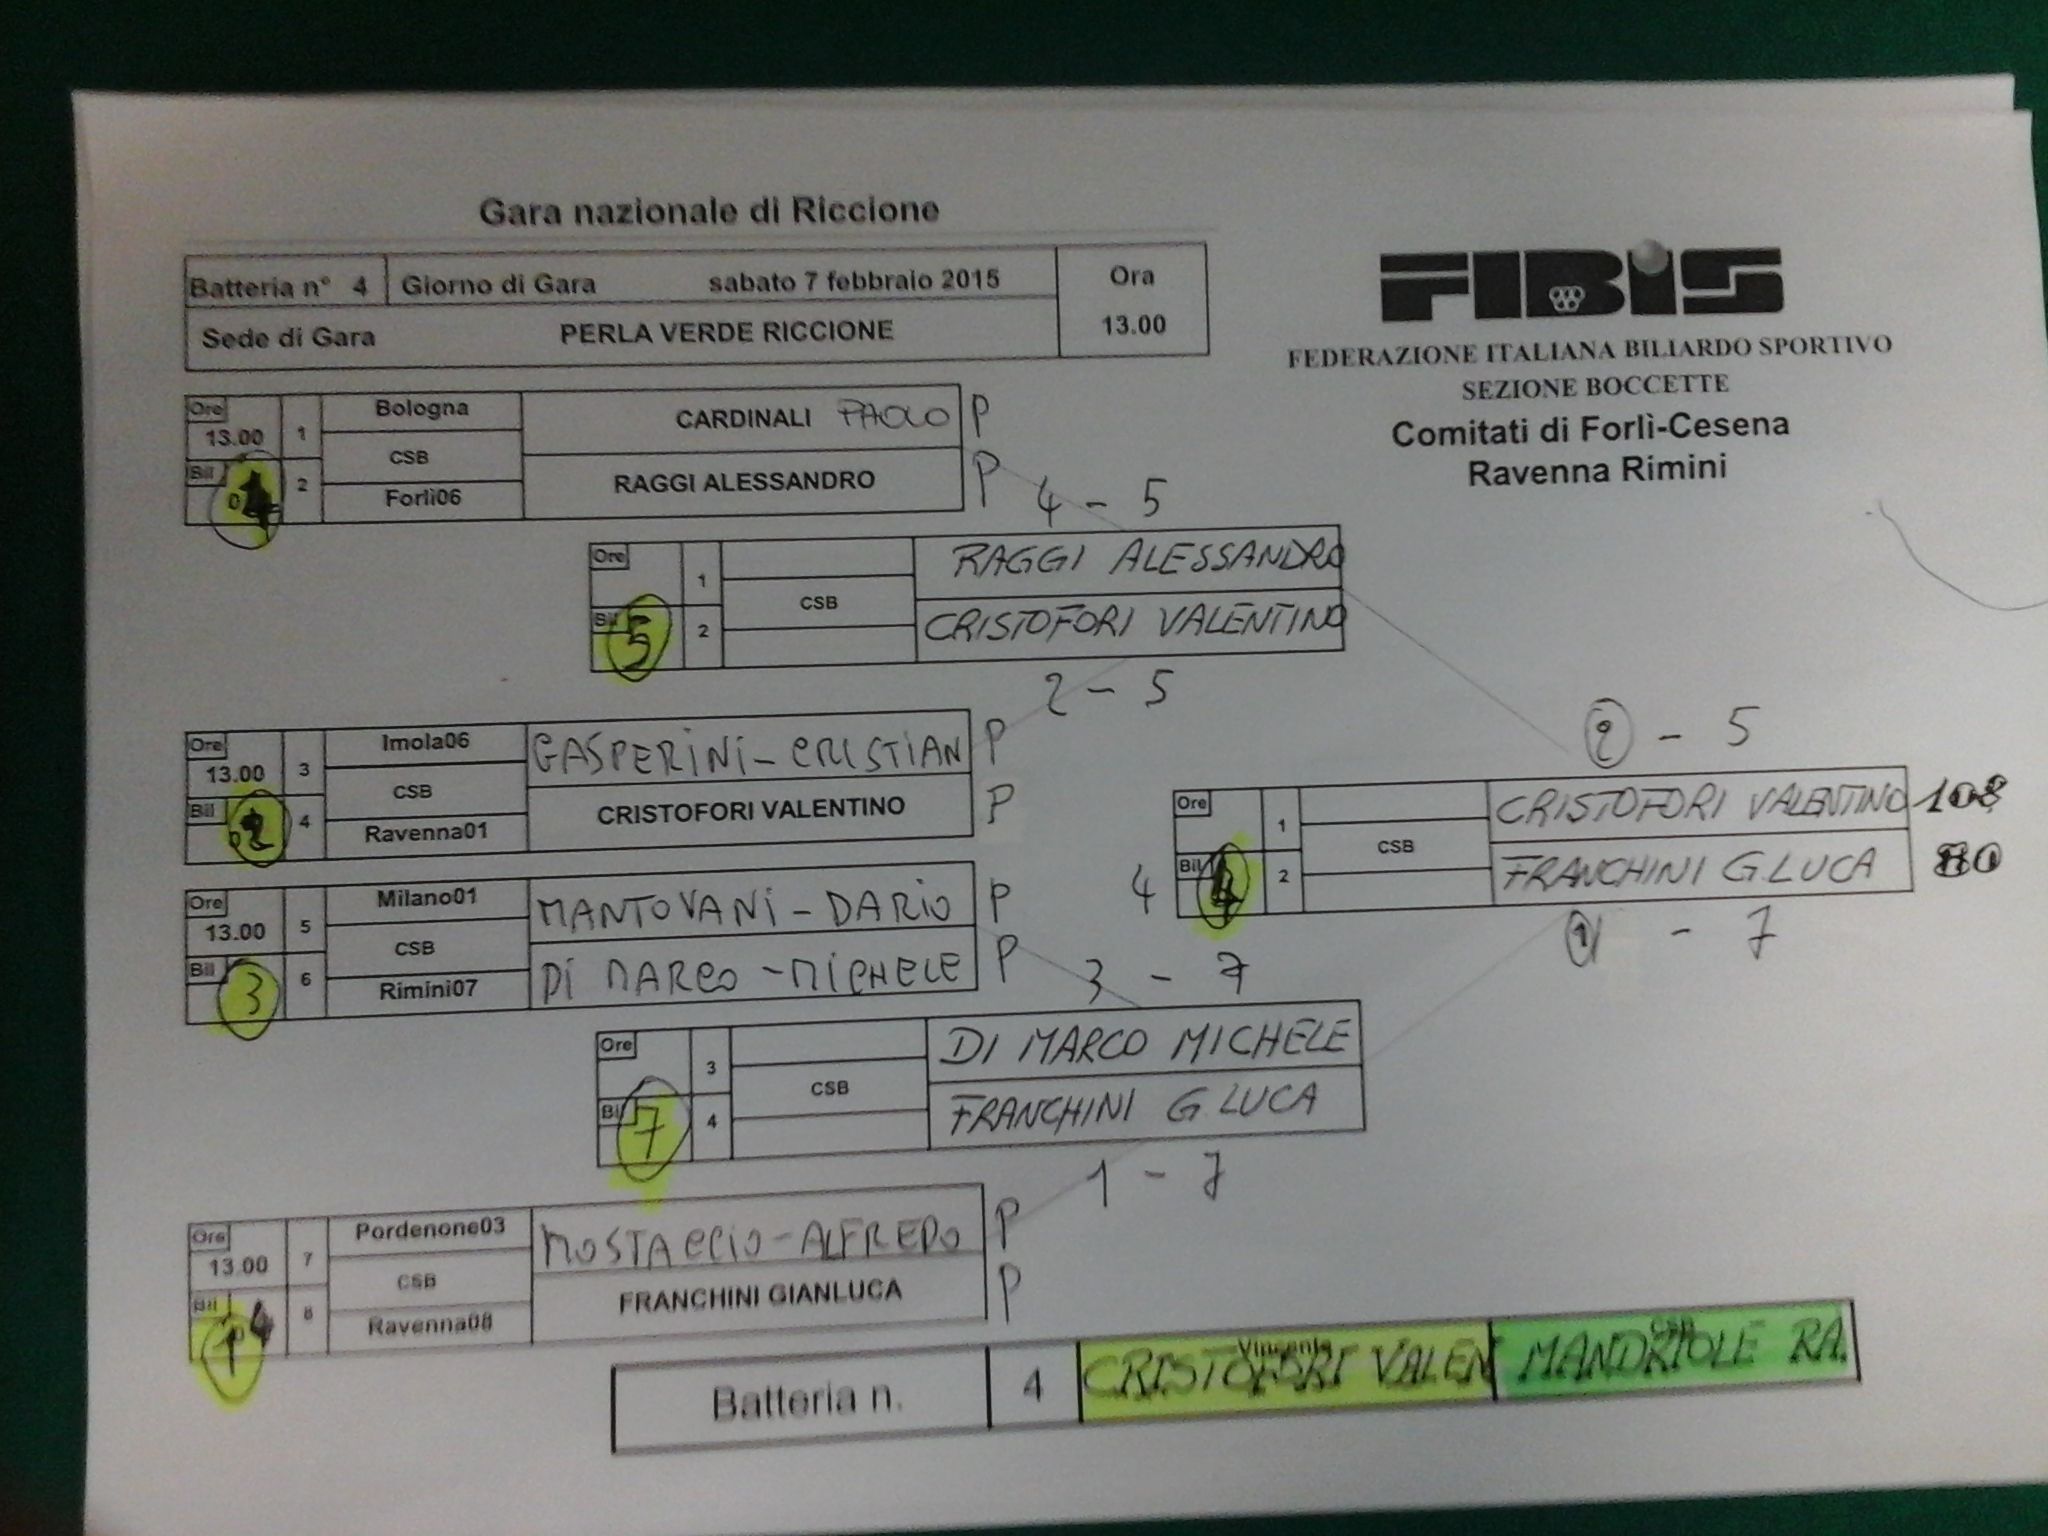 Gara nazionale di Riccione
Batteria n° 4 Giorno di Gara sabato 7 febbraio 2015 Ora
Sede di Gara PERLA VERDE RICCIONE 13.00
FIBiS
FEDERAZIONE ITALIANA BILIARDO SPORTIVO
SEZIONE BOCCETTE
Comitati di Forlì-Cesena
Ravenna Rimini
Ore 13.00 1 Bologna CARDINALI PAOLO P
CSB
Bil 2 Forlì06 RAGGI ALESSANDRO P
4 - 5
Ore 1 RAGGI ALESSANDRO
CSB
Bil 5 2 CRISTOFORI VALENTINO
2 - 5
Ore 13.00 3 Imola06 GASPERINI - CRISTIAN P
CSB
Bil 2 4 Ravenna01 CRISTOFORI VALENTINO P
2 - 5
Ore 1 CRISTOFORI VALENTINO 108
CSB
4 Bil 2 FRANCHINI G.LUCA
1 - 7
Ore 13.00 5 Milano01 MANTOVANI - DARIO P
CSB
Bil 3 6 Rimini07 DI MARCO - MICHELE P
3 - 7
Ore 3 DI MARCO MICHELE
CSB
Bil 7 4 FRANCHINI G.LUCA
1 - 7
Ore 13.00 7 Pordenone03 MOSTACCIO - ALFREDO P
CSB
Bil 1 8 Ravenna08 FRANCHINI GIANLUCA P
Batteria n. 4 Vincente CRISTOFORI VALEN CSB MANDRIOLE RA.